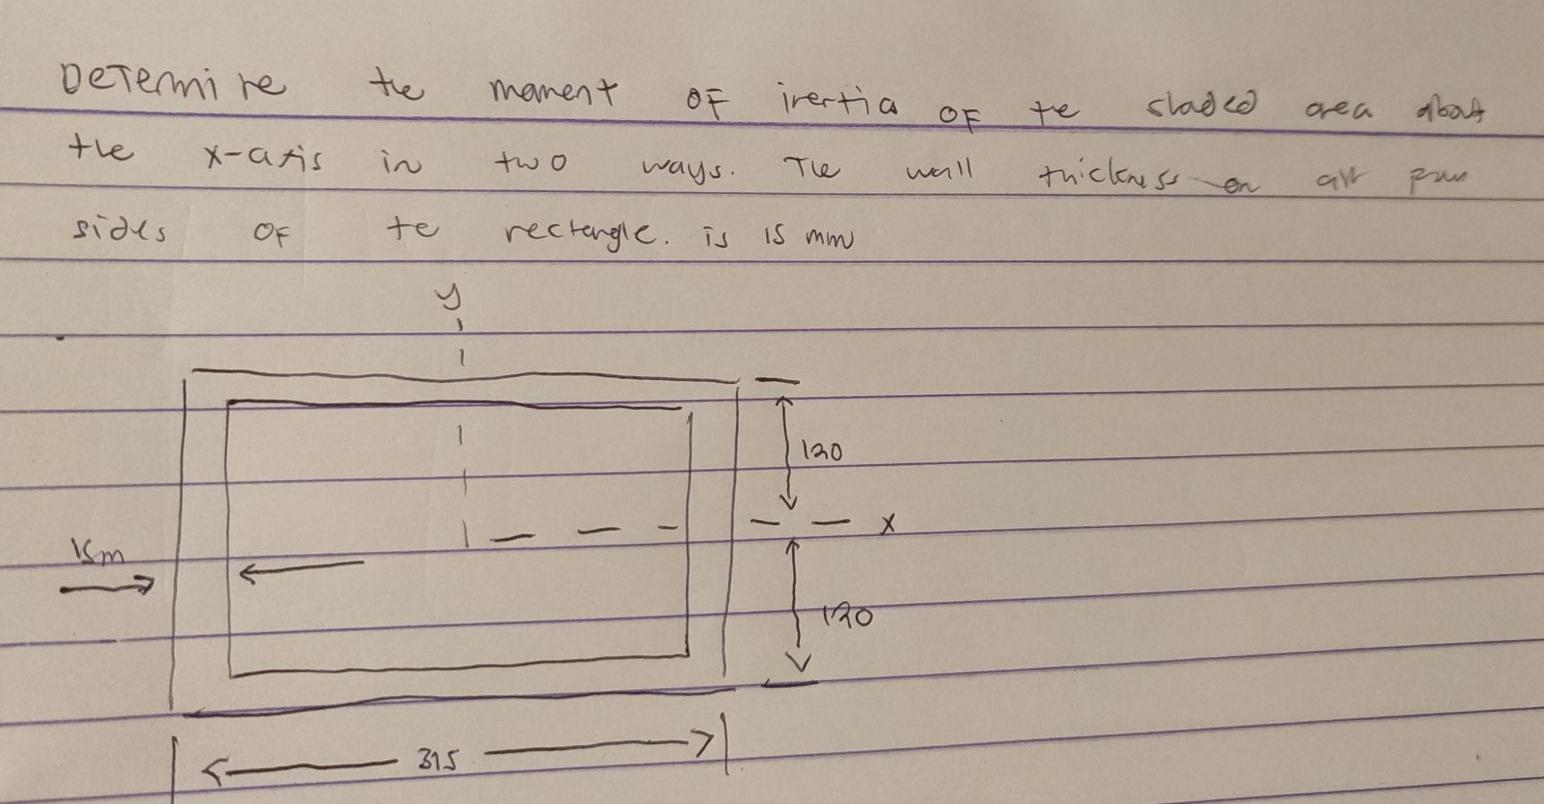 Determine the moment of inertia of te shaded area about
the x-axis in two ways. The wall thickness on all
sides of te rectangle. is 15 mm
y
120
x
15m
120
315